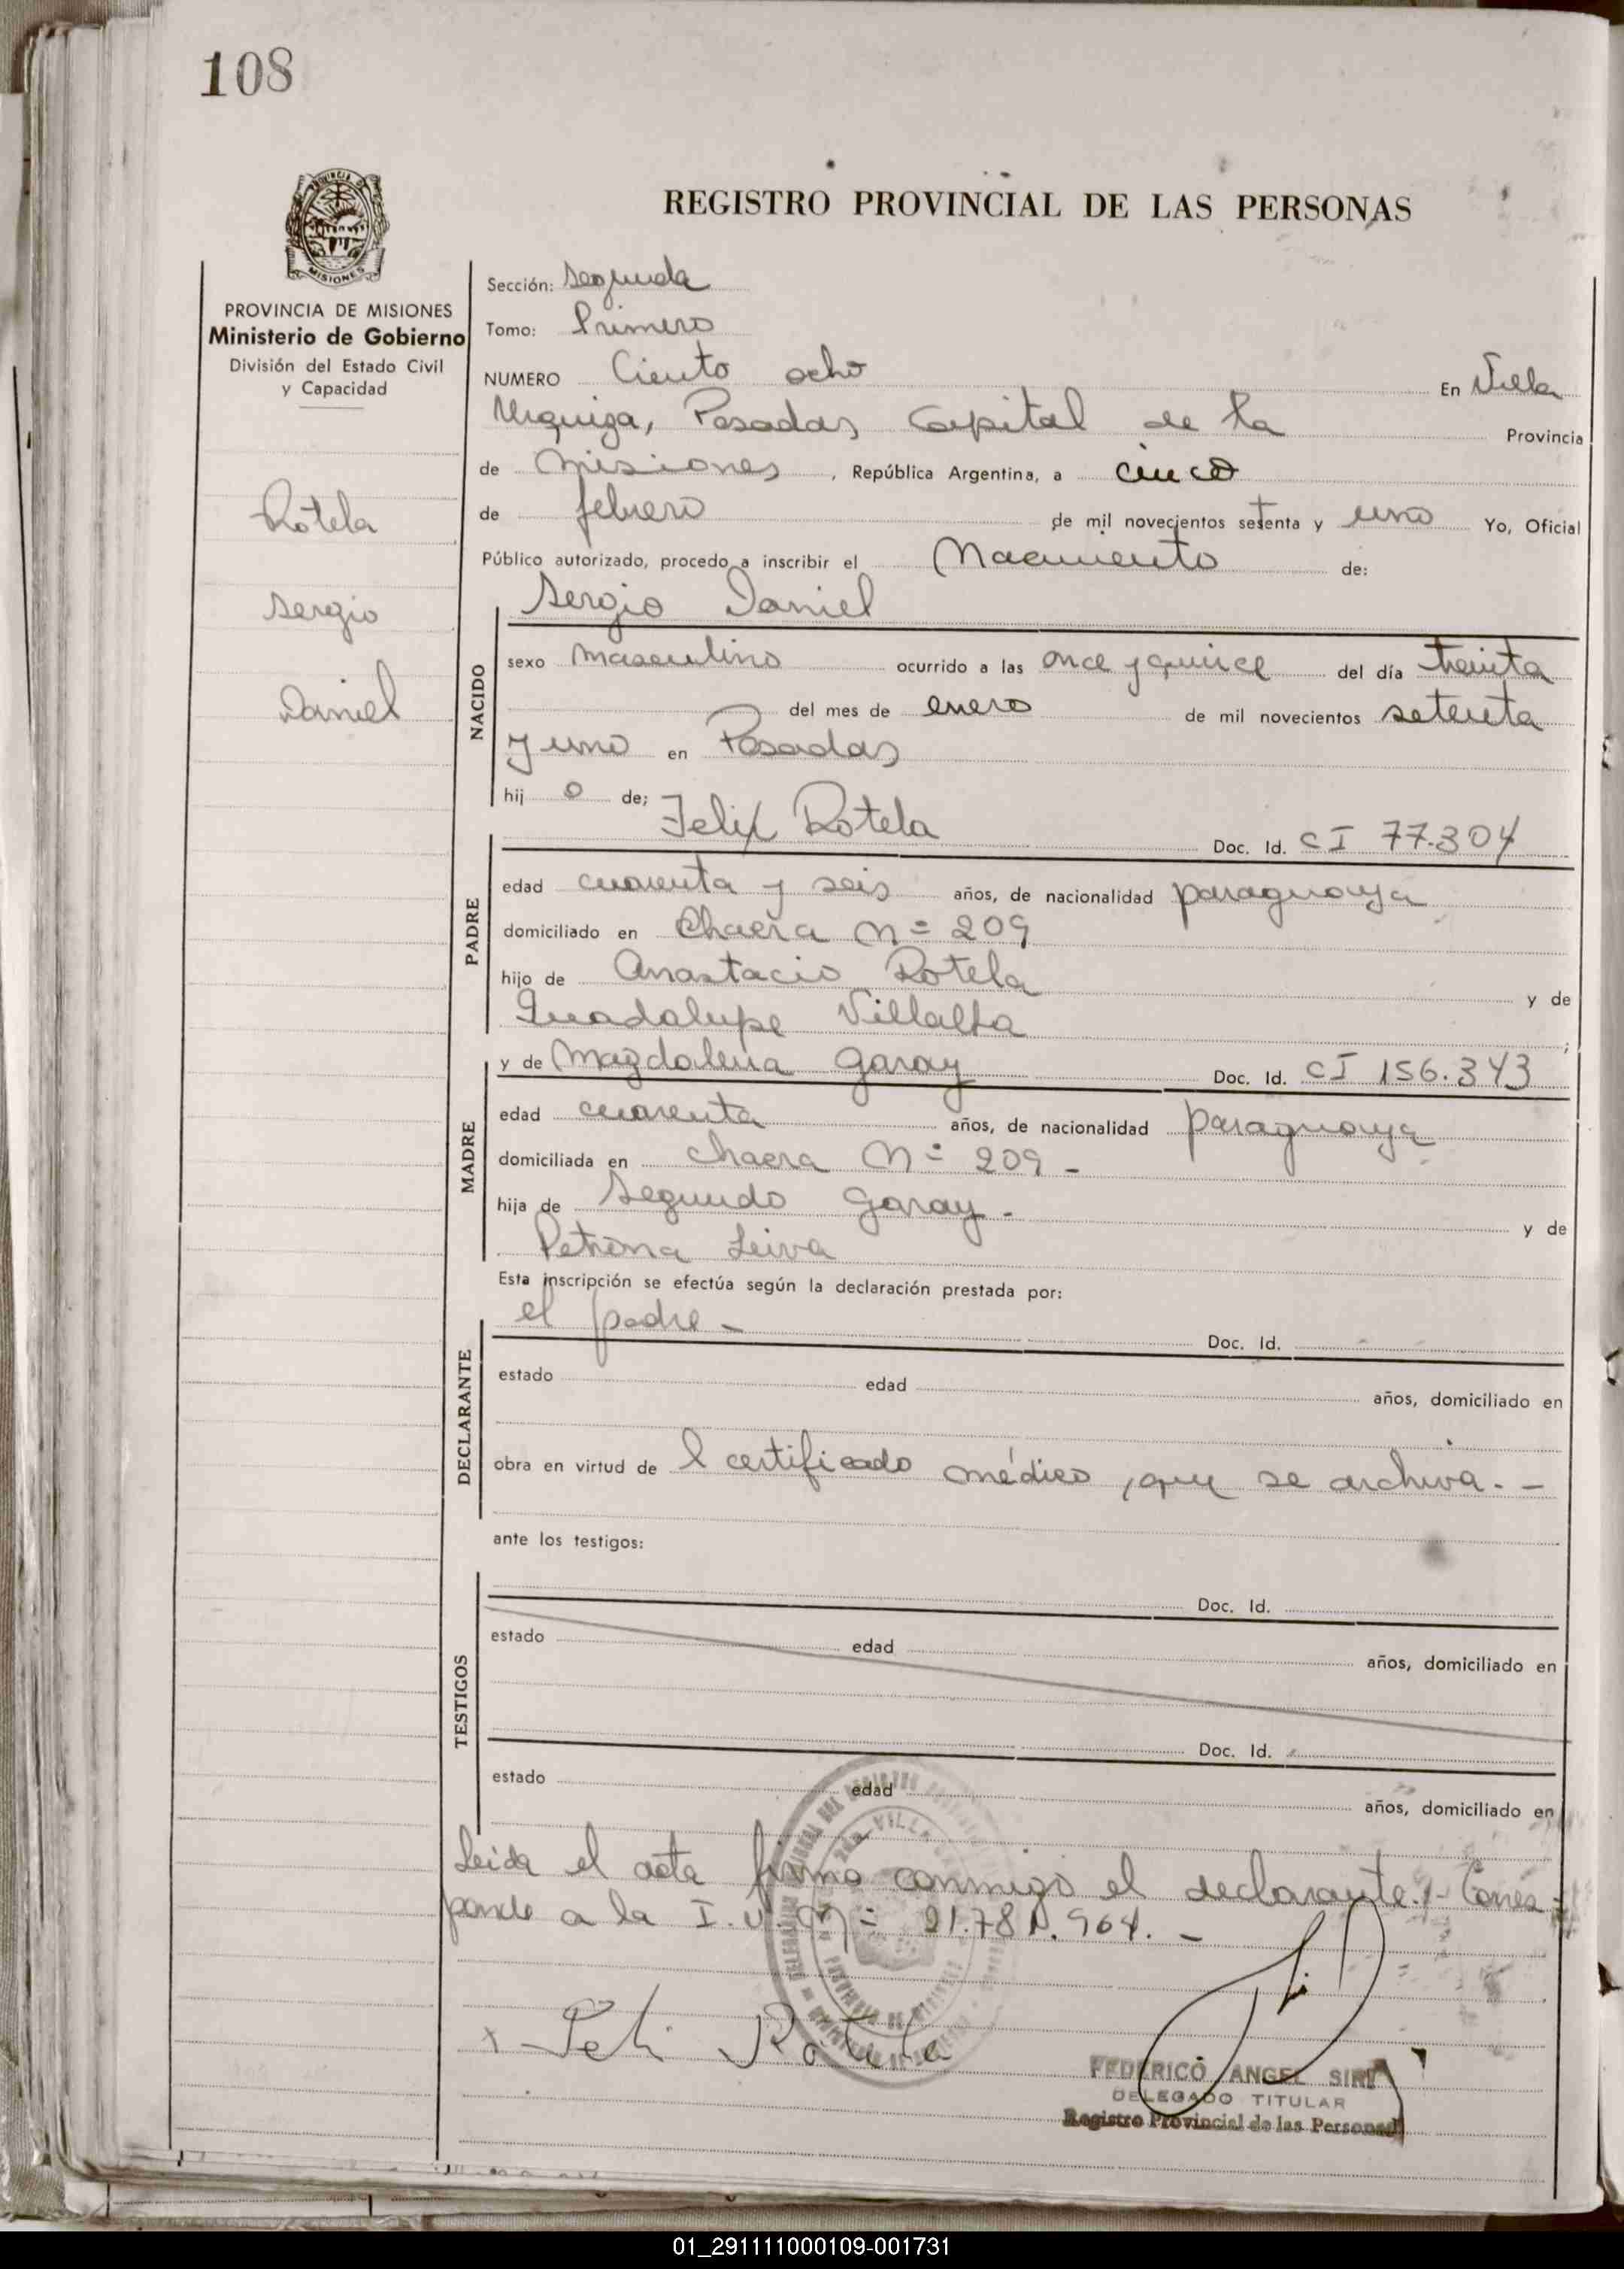 108
REGISTRO PROVINCIAL DE LAS PERSONAS
PROVINCIA DE MISIONES
Ministerio de Gobierno
División del Estado Civil
y Capacidad
Rotela
Sergio
Daniel
Sección: Segunda
Tomo: Primero
NUMERO Ciento ocho En Villa
Urquiza, Posadas Capital de la Provincia
de Misiones, República Argentina, a cinco
de febrero de mil novecientos setenta y uno Yo, Oficial
Público autorizado, procedo a inscribir el Nacimiento de:
Sergio Daniel
NACIDO
sexo masculino ocurrido a las once y quince del día treinta
del mes de enero de mil novecientos setenta
y uno en Posadas
hij o de; Felix Rotela Doc. Id. CI 77.304
PADRE
edad cuarenta y seis años, de nacionalidad paraguaya
domiciliado en Chacra Nº 209
hijo de Anastacio Rotela y de
Guadalupe Villalba ;
y de Magdalena Garay Doc. Id. CI 156.343
MADRE
edad cuarenta años, de nacionalidad paraguaya
domiciliada en chacra Nº 209 -
hija de Segundo Garay - y de
Petrona Leiva
Esta inscripción se efectúa según la declaración prestada por:
el padre - Doc. Id.
DECLARANTE
estado edad años, domiciliado en
obra en virtud de l certificado médico, que se archiva. -
ante los testigos:
Doc. Id.
TESTIGOS
estado edad años, domiciliado en
Doc. Id.
estado edad años, domiciliado en
Leida el acta firma conmigo el declarante.- Corres-
ponde a la I. U. Nº 21.781.964. -
x Feli Rotela
FEDERICO ANGEL SIRI
DELEGADO TITULAR
Registro Provincial de las Personas
01_291111000109-001731